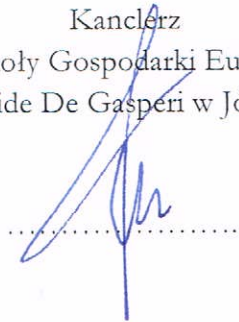 Kanclerz
oły Gospodarki Eu
ide De Gasperi w Jó
..............................